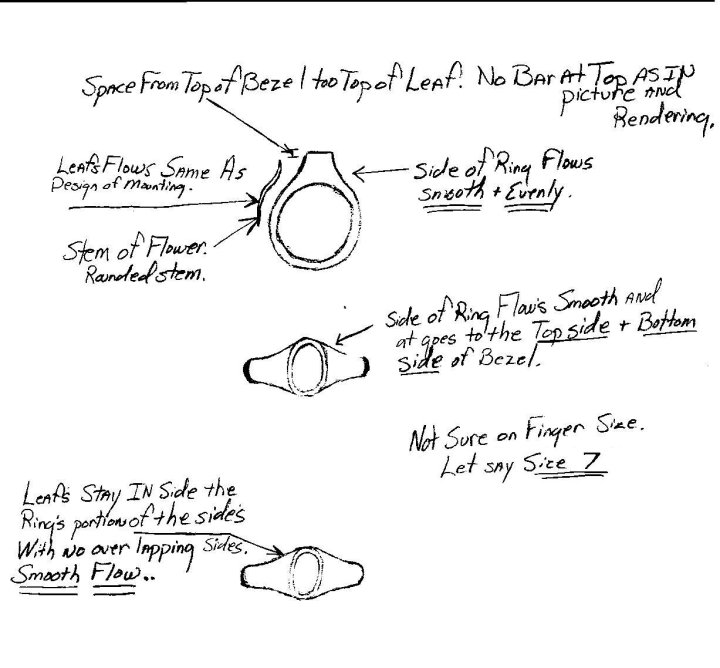 Space From Top of Bezel too Top of Leaf. No Bar At Top AS IN
picture AND
Rendering.
Leafs Flows Same As
Design of Mounting.
Side of Ring Flows
Smooth + Evenly.
Stem of Flower.
Rounded stem.
Side of Ring Flow's Smooth AND
at goes to the Top side + Bottom
Side of Bezel.
Not Sure on Finger Size.
Let say Size 7
Leafs STAY IN Side the
Ring's portion of the side's
With No over lapping Sides.
Smooth Flow..